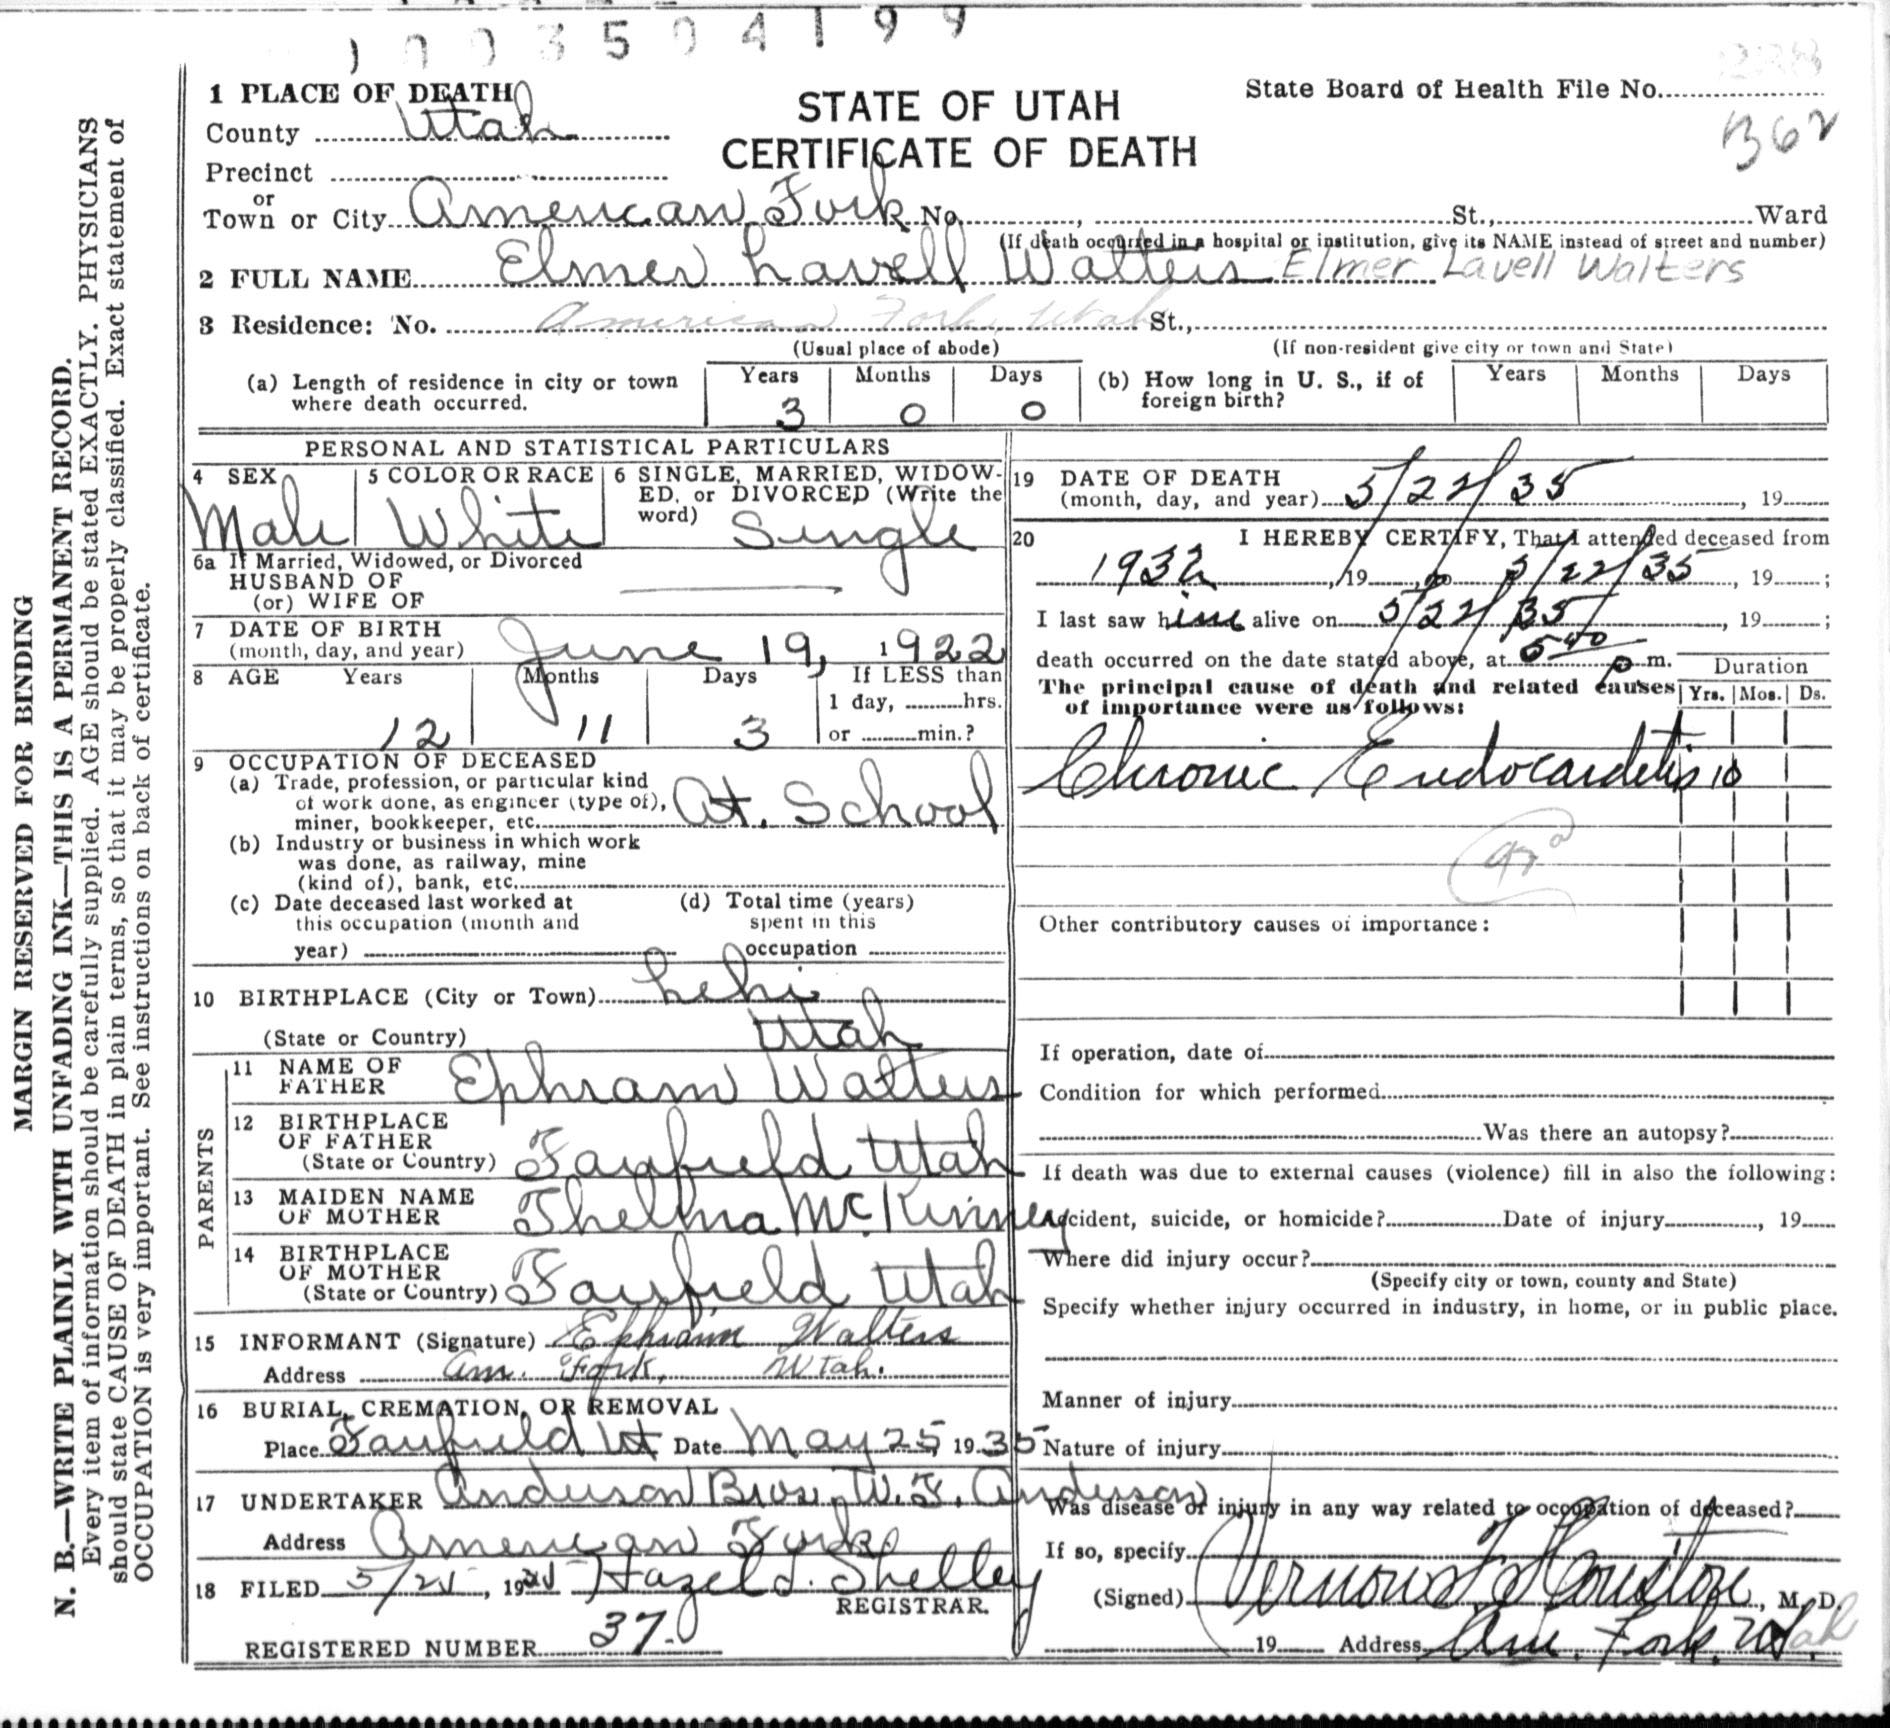 1003504199
1 PLACE OF DEATH
STATE OF UTAH
CERTIFICATE OF DEATH
State Board of Health File No.
362
County Utah
Precinct
or
Town or City American Fork No. , St., Ward
(If death occurred in a hospital or institution, give its NAME instead of street and number)
2 FULL NAME Elmer Lavell Walters Elmer Lavell Walters
3 Residence: No. American Fork, Utah St.,
(Usual place of abode) (If non-resident give city or town and State)
(a) Length of residence in city or town where death occurred. Years 3 Months 0 Days 0
(b) How long in U. S., if of foreign birth? Years Months Days
PERSONAL AND STATISTICAL PARTICULARS
4 SEX Male
5 COLOR OR RACE White
6 SINGLE, MARRIED, WIDOWED, or DIVORCED (Write the word) Single
6a If Married, Widowed, or Divorced
HUSBAND OF
(or) WIFE OF
7 DATE OF BIRTH
(month, day, and year) June 19, 1922
8 AGE Years 12 Months 11 Days 3
If LESS than
1 day, hrs.
or min.?
9 OCCUPATION OF DECEASED
(a) Trade, profession, or particular kind
of work done, as engineer (type of),
miner, bookkeeper, etc. At School
(b) Industry or business in which work
was done, as railway, mine
(kind of), bank, etc.
(c) Date deceased last worked at
this occupation (month and
year)
(d) Total time (years)
spent in this
occupation
10 BIRTHPLACE (City or Town) Lehi
(State or Country) Utah
PARENTS
11 NAME OF FATHER Ephram Walters
12 BIRTHPLACE OF FATHER
(State or Country) Fairfield Utah
13 MAIDEN NAME OF MOTHER Thelma McKinney
14 BIRTHPLACE OF MOTHER
(State or Country) Fairfield Utah
15 INFORMANT (Signature) Ephraim Walters
Address Am. Fork, Utah.
16 BURIAL, CREMATION, OR REMOVAL
Place Fairfield Ut Date May 25 1935
17 UNDERTAKER Anderson Bros. W. F. Anderson
Address American Fork
18 FILED 5/25, 19 Hazel J. Shelley
REGISTRAR.
REGISTERED NUMBER 37
19 DATE OF DEATH
(month, day, and year) 5/22/35 , 19
20 I HEREBY CERTIFY, That I attended deceased from
1932, 19 , to 5/22/35, 19 ;
I last saw him alive on 5/22/35, 19 ;
death occurred on the date stated above, at 5 40 p m.
The principal cause of death and related causes
of importance were as follows:
Duration
Yrs. Mos. Ds.
Chronic Endocarditis 10
Other contributory causes of importance:
If operation, date of
Condition for which performed
Was there an autopsy?
If death was due to external causes (violence) fill in also the following:
Accident, suicide, or homicide? Date of injury , 19
Where did injury occur?
(Specify city or town, county and State)
Specify whether injury occurred in industry, in home, or in public place.
Manner of injury
Nature of injury
Was disease or injury in any way related to occupation of deceased?
If so, specify
(Signed) Vernon F Houston, M. D.
19 Address Am. Fork. Utah
MARGIN RESERVED FOR BINDING
N. B.—WRITE PLAINLY WITH UNFADING INK—THIS IS A PERMANENT RECORD.
Every item of information should be carefully supplied. AGE should be stated EXACTLY. PHYSICIANS
should state CAUSE OF DEATH in plain terms, so that it may be properly classified. Exact statement of
OCCUPATION is very important. See instructions on back of certificate.